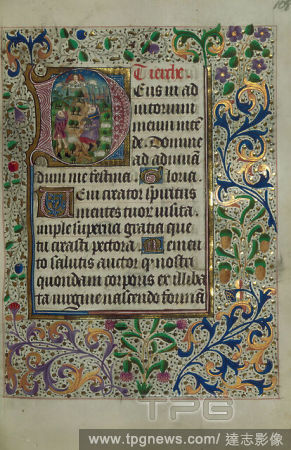 108
Tierche
Deus in ad
iutorium
meum inte
de. Domine
ad adiuuā
dum me festina. Gloria.
Veni creator spiritus
mentes tuor visita.
imple superna gratia que
tu creasti pectora. Memen
to salutis auctor q nostri
quondam corporis ex illiba
ta uirgine nascendo formā
TPG
www.tpgnews.com / 達志影像